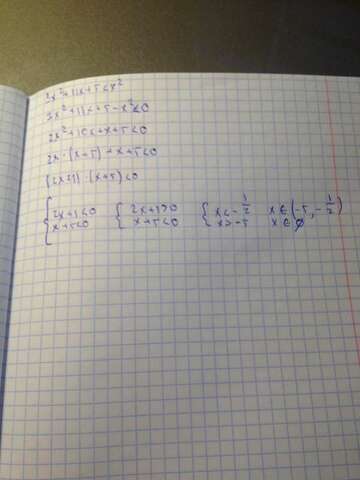 3x²+11x+5<x²
3x²+11x+5-x²<0
2x²+10x+x+5<0
2x·(x+5)+x+5<0
(2x+1)·(x+5)<0
{2x+1<0 {2x+1>0 {x<-1/2 x∈(-5,-1/2)
x+5<0 x+5<0 x>-5 x∈∅